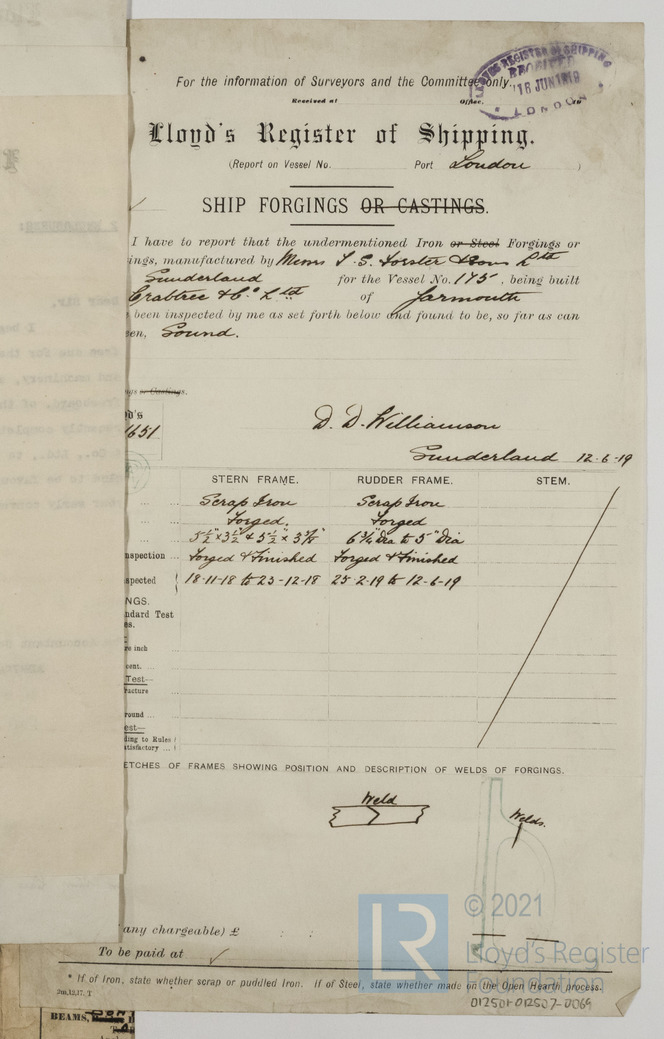 For the information of Surveyors and the Committee only.
LLOYD'S REGISTER OF SHIPPING
RECEIVED
16 JUN 1919
LONDON
Received at Office, 19
Lloyd's Register of Shipping.
(Report on Vessel No. Port London )
SHIP FORGINGS OR CASTINGS.
I have to report that the undermentioned Iron or Steel Forgings or
ings, manufactured by Messrs T. S. Forster & Sons Ltd
Sunderland for the Vessel No. 175, being built
Crabtree & Co. Ltd of Yarmouth
been inspected by me as set forth below and found to be, so far as can
en, Sound.
gs or Castings.
d's
1651
D. D. Williamson
Sunderland 12-6-19
STERN FRAME. RUDDER FRAME. STEM.
Scrap Iron Scrap Iron
Forged. Forged
6¾" Dia to 5" Dia
nspection Forged & Finished Forged & Finished
spected 18-11-18 to 23-12-18 25-2-19 to 12-6-19
NGS.
ndard Test
es.
re inch
cent.
Test—
racture
round
est—
ding to Rules
tisfactory
ETCHES OF FRAMES SHOWING POSITION AND DESCRIPTION OF WELDS OF FORGINGS.
Weld
Welds.
any chargeable) £ : :
To be paid at
* If of Iron, state whether scrap or puddled Iron. If of Steel, state whether made on the Open Hearth process.
2m,12,17. T
LR
© 2021
Lloyd's Register
Foundation
012501-012507-0069
BEAMS,